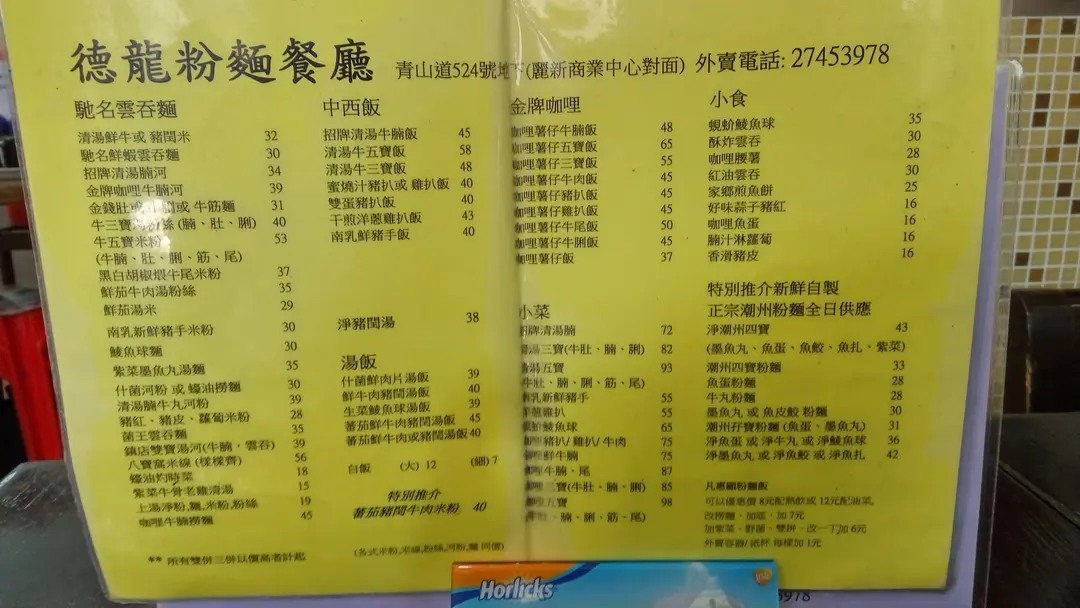 德龍粉麵餐廳 青山道524號地下(麗新商業中心對面) 外賣電話: 27453978
馳名雲吞麵
清湯鮮牛或 豬閏米 32
馳名鮮蝦雲吞麵 30
招牌清湯腩河 34
金牌咖哩牛腩河 39
金錢肚或 或 牛筋麵 31
牛三寶 粉絲 (腩、肚、脷) 40
牛五寶米粉 53
(牛腩、肚、脷、筋、尾)
黑白胡椒煨牛尾米粉 37
鮮茄牛肉湯粉絲 35
鮮茄湯米 29
南乳新鮮豬手米粉 30
鯪魚球麵 30
紫菜墨魚丸湯麵 35
什菌河粉 或 蠔油撈麵 30
清湯腩牛丸河粉 39
豬紅、豬皮、蘿蔔米粉 28
菌王雲吞麵 35
鎮店雙寶湯河(牛腩,雲吞) 39
八寶窩米線 (樣樣齊) 56
蠔油灼時菜 18
紫菜牛骨老雞清湯 15
上湯淨粉,麵,米粉,粉絲 19
咖哩牛腩撈麵 45
** 所有雙併三併以價高者計起
中西飯
招牌清湯牛腩飯 45
清湯牛五寶飯 58
清湯牛三寶飯 48
蜜燒汁豬扒或 雞扒飯 40
雙蛋豬扒飯 40
干煎洋蔥雞扒飯 43
南乳鮮豬手飯 40
淨豬閏湯 38
湯飯
什菌鮮肉片湯飯 39
鮮牛肉豬閏湯飯 40
生菜鯪魚球湯飯 39
蕃茄鮮牛肉豬閏湯飯 45
蕃茄鮮牛肉或豬閏湯飯 40
白飯 (大) 12 (細) 7
特別推介
蕃茄豬閏牛肉米粉 40
(各式米粉,米線,粉絲,河粉,麵 同價)
金牌咖哩
咖哩薯仔牛腩飯 48
咖哩薯仔五寶飯 65
咖哩薯仔三寶飯 55
咖哩薯仔牛肉飯 45
咖哩薯仔豬扒飯 45
咖哩薯仔雞扒飯 45
咖哩薯仔牛尾飯 50
咖哩薯仔牛脷飯 45
咖哩薯仔飯 37
小菜
招牌清湯腩 72
湯三寶(牛肚、腩、脷) 82
湯五寶 93
牛肚、腩、脷、筋、尾)
南乳新鮮豬手 55
雞扒 55
鯪魚球 65
豬扒/ 雞扒/ 牛肉 75
鮮牛腩 75
牛腩、尾 87
三寶(牛肚、腩、脷) 85
五寶 98
肚、腩、脷、筋、尾)
小食
蜆蚧鯪魚球 35
酥炸雲吞 30
咖哩腰薯 28
紅油雲吞 30
家鄉煎魚餅 25
好味蒜子豬紅 16
咖哩魚蛋 16
腩汁淋蘿蔔 16
香滑豬皮 16
特別推介新鮮自製
正宗潮州粉麵全日供應
淨潮州四寶 43
(墨魚丸、魚蛋、魚餃、魚扎、紫菜)
潮州四寶粉麵 33
魚蛋粉麵 28
牛丸粉麵 28
墨魚丸 或 魚皮餃 粉麵 30
潮州孖寶粉麵 (魚蛋、墨魚丸) 31
淨魚蛋 或 淨牛丸 或 淨鯪魚球 36
淨墨魚丸 或 淨魚餃 或 淨魚扎 42
凡惠顧粉麵飯
可以優惠價 8元配熱飲或 12元配油菜,
改撈麵、加底、加 7元
加紫菜、野菌、雙拼、改一丁,加 6元
外賣容器/ 紙杯 每樣加 1元
Horlicks